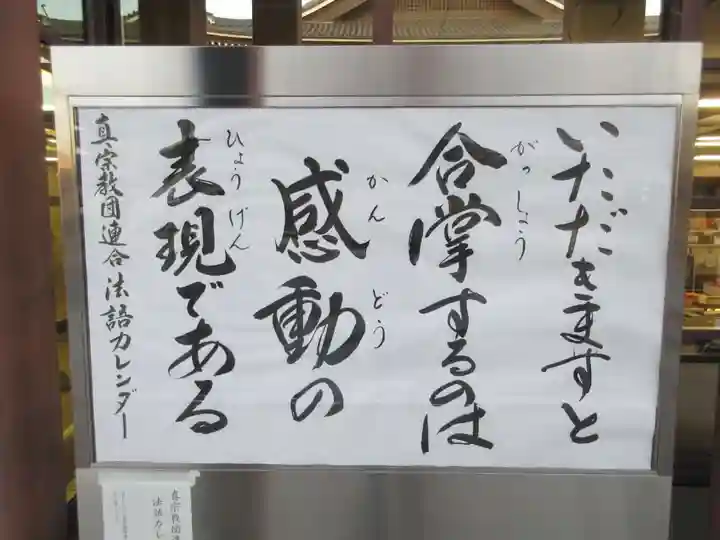 いただきますと
合掌するのは
がっしょう
感動の
かんどう
表現である
ひょうげん
真宗教団連合法語カレンダー
真宗教団連
法語カレ